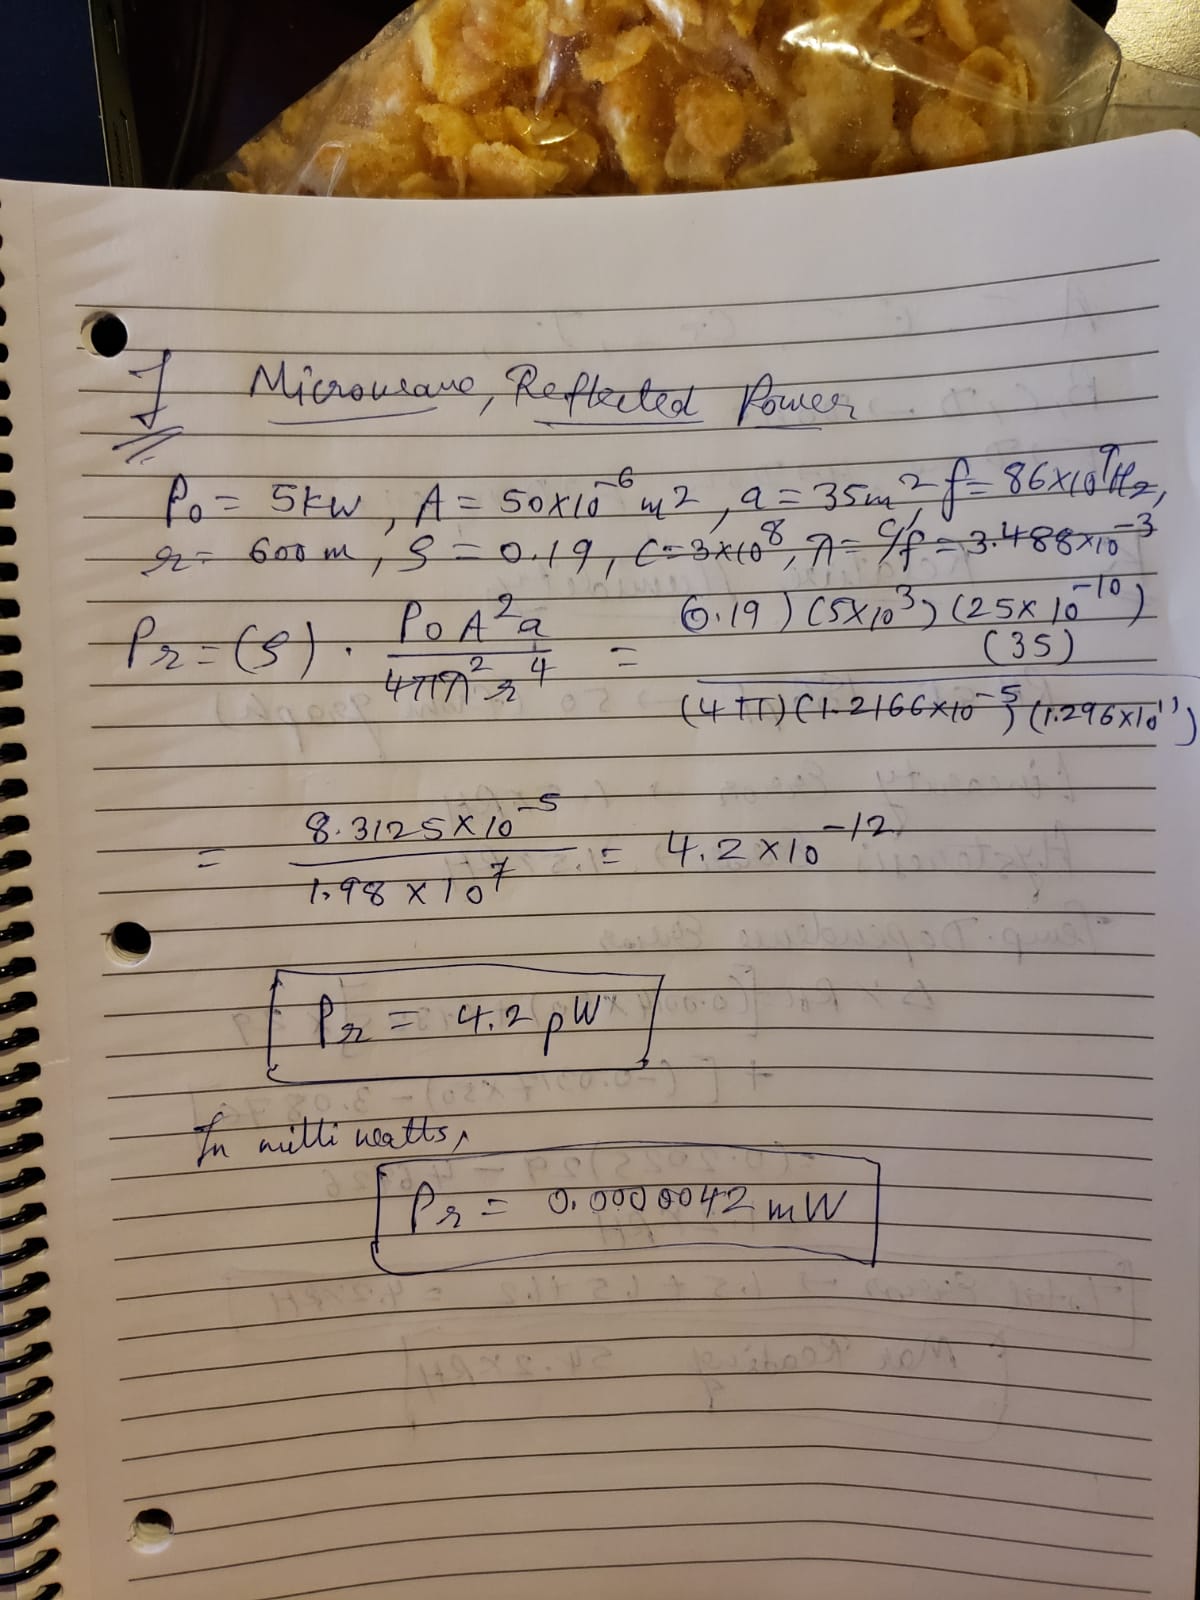 J Microwave, Reflected Power
P₀ = 5kW, A = 50×10⁻⁶ m2, a = 35m², f = 86×10⁹Hz,
r = 600 m, ρ = 0.19, C = 3×10⁸, λ = c/f = 3.488×10⁻³
Pr = (ρ) · P₀A²a / 4πλ²r⁴ = (0.19)(5×10³)(25×10⁻¹⁰)(35) / (4π)(1.2166×10⁻⁵)(1.296×10¹¹)
= 8.3125×10⁻⁵ / 1.98×10⁷ = 4.2×10⁻¹²
Pr = 4.2 pW
In milli watts,
Pr = 0.0000042 mW